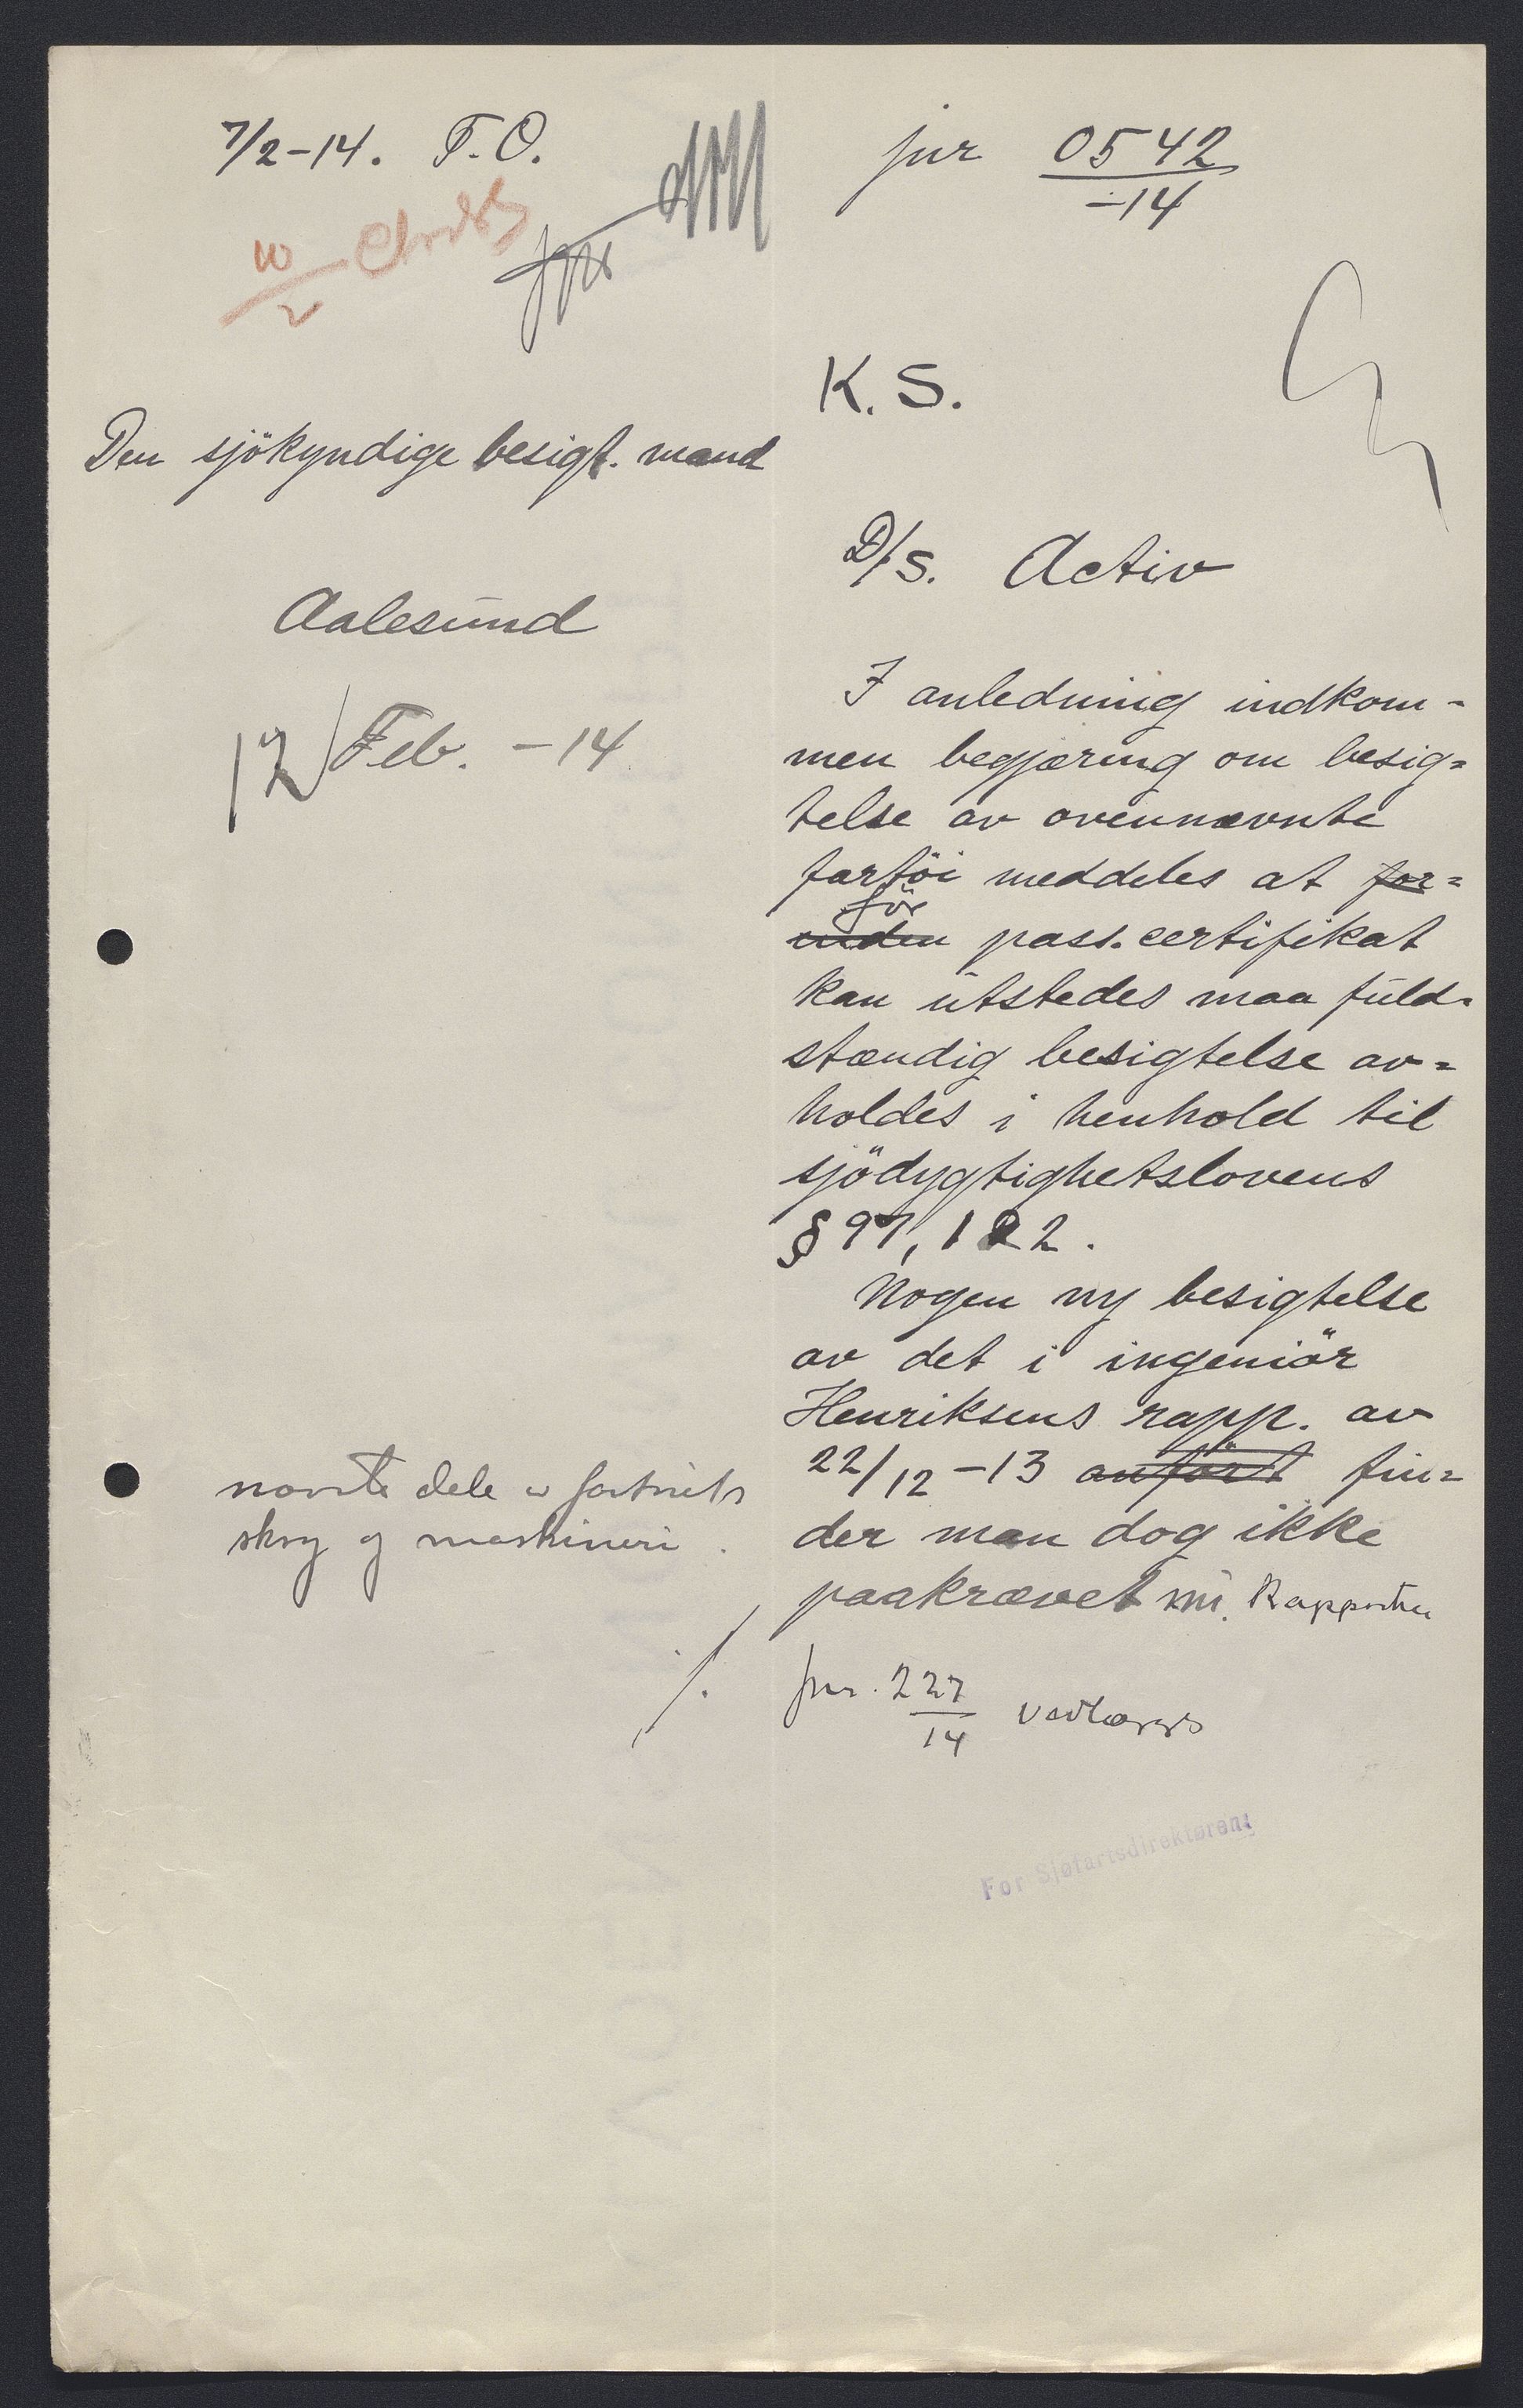 7/2-14. F.O.
10/2
jnr 0542/-14
K. S.
Den sjökyndige besigt. mand
Aalesund
12/Feb. -14
D/S. Activ
I anledning indkom-
men begjæring om besig=
telse av ovennævnte
fartöi meddeles at for=
för
inden pass. certifikat
kan utstedes maa fuld=
stændig besigtelse av=
holdes i henhold til
sjödygtighetslovens
§ 97, 1 2.
Nogen ny besigtelse
av det i ingeniör
Henriksens rapp. av
22/12-13 anfört fin=
nævnte dele av fartöiets
skrog og maskineri.
der man dog ikke
paakrævet nu. Rapporten
jnr. 227/14 vedlægges
For Sjøfartsdirektøren